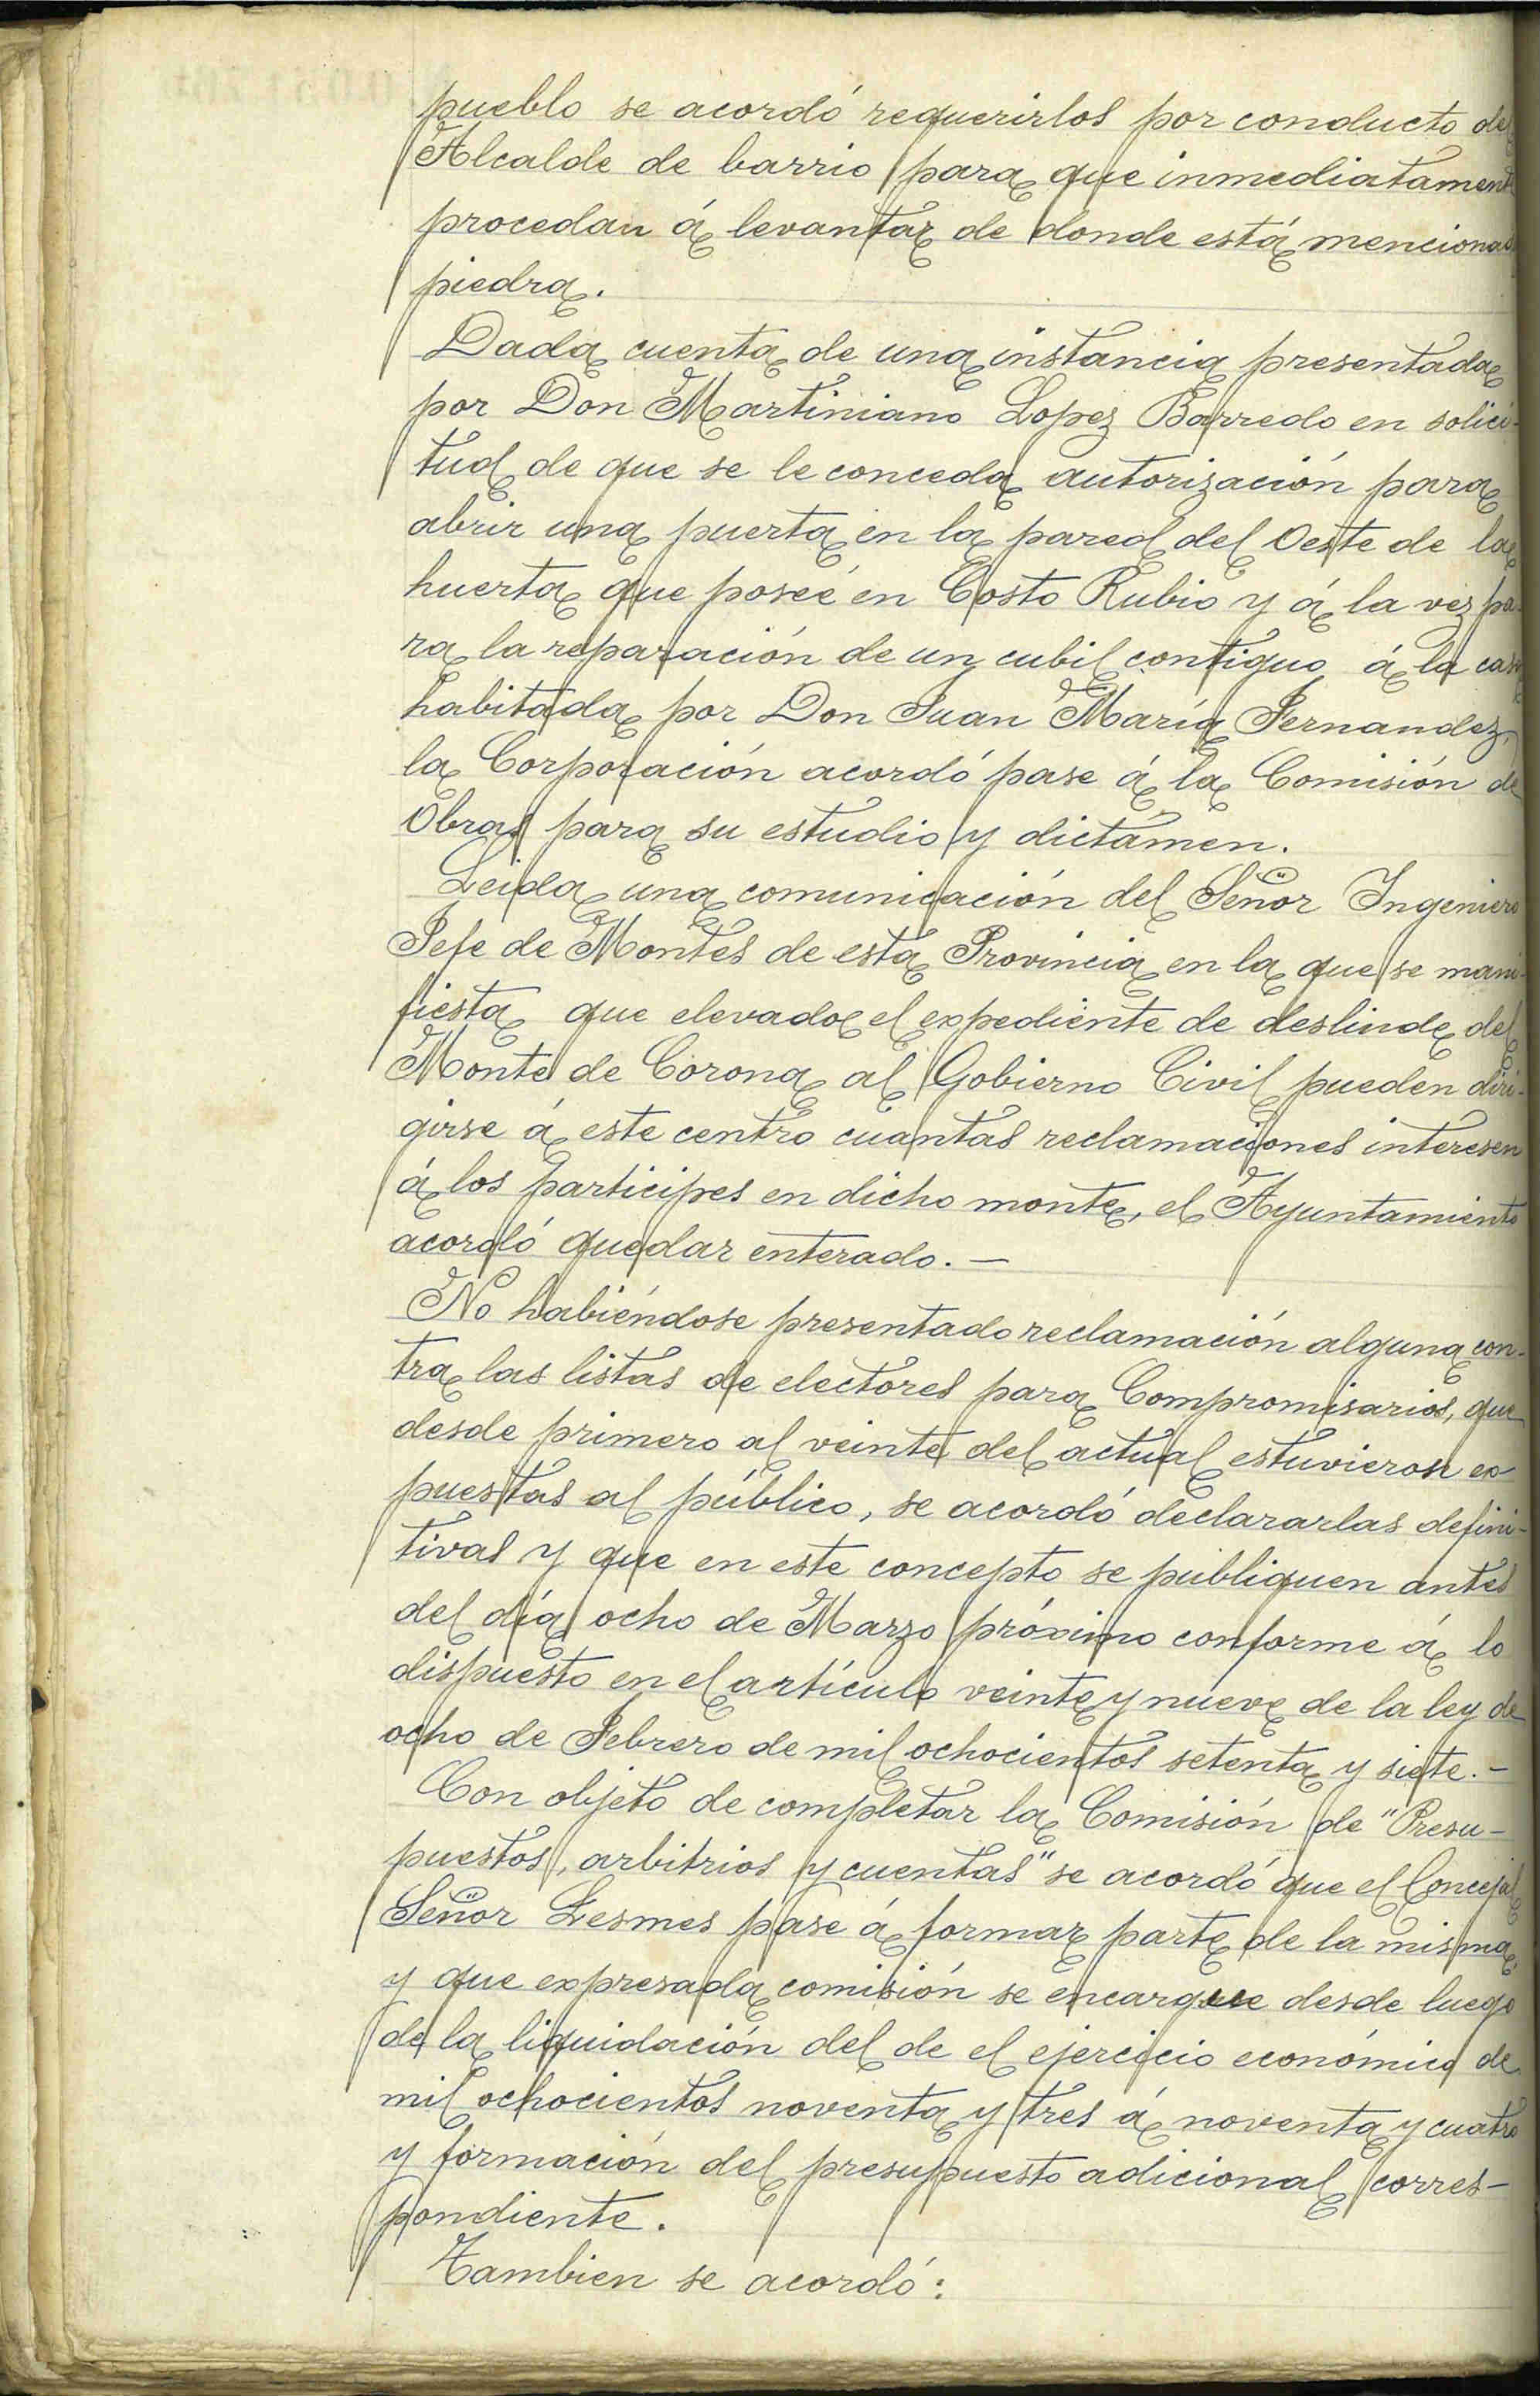 pueblo se acordó requerirlos por conducto del
Alcalde de barrio para que inmediatament
procedan á levantar de donde está mencionad
piedra.
Dada cuenta de una instancia presentada
por Don Martiniano Lopez Barredo en solici-
tud de que se le conceda autorización para
abrir una puerta en la pared del Oeste de la
huerta que poseé en Costo Rubio y á la vez pa-
ra la reparación de un cubil contiguo á la casa
habitada por Don Juan María Fernandez,
la Corporación acordó pase á la Comisión de
Obras para su estudio y dictámen.
Leida una comunicación del Señor Ingeniero
Jefe de Montes de esta Provincia en la que se mani-
fiesta que elevado el expediente de deslinde del
Monte de Corona al Gobierno Civil pueden diri-
girse á este centro cuantas reclamaciones interesen
á los participes en dicho monte, el Ayuntamiento
acordó quedar enterado. —
No habiéndose presentado reclamación alguna con-
tra las listas de electores para Compromisarios, que
desde primero al veinte del actual estuvieron ex
puestas al público, se acordó declararlas defini-
tivas y que en este concepto se publiquen antes
del día ocho de Marzo próximo conforme á lo
dispuesto en el artículo veinte y nueve de la ley de
ocho de Febrero de mil ochocientos setenta y siete. -
Con objeto de completar la Comisión de "Presu-
puestos, arbitrios y cuentas" se acordó que el Concejal
Señor Lesmes pase á formar parte de la misma,
y que expresada comisión se encargue desde luego
de la liquidación del de el ejercicio económico de
mil ochocientos noventa y tres á noventa y cuatro
y formación del presupuesto adicional corres-
pondiente.
Tambien se acordó: